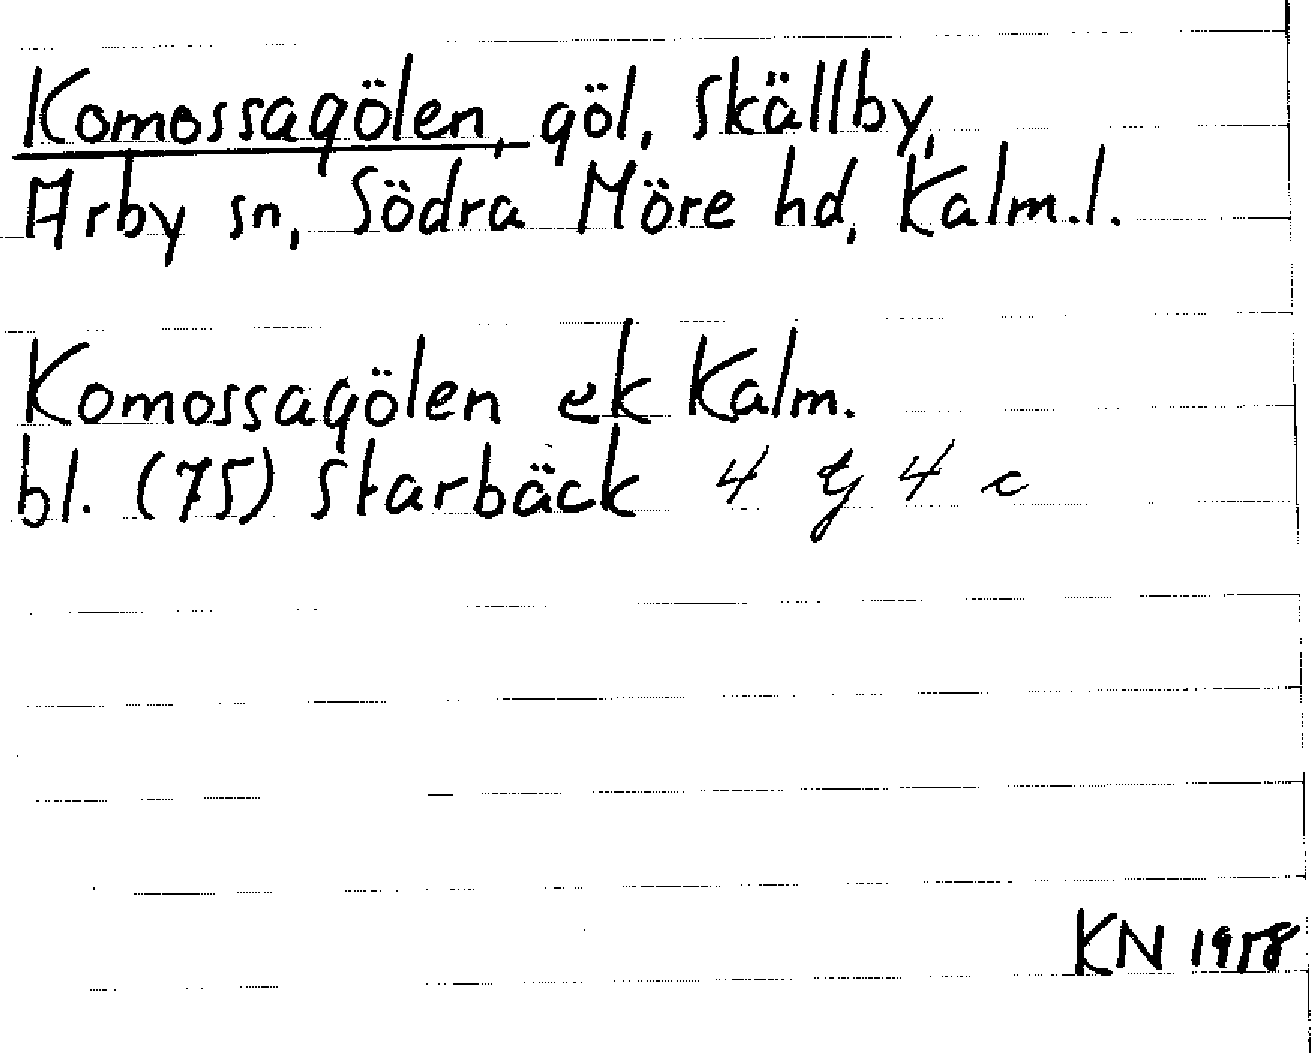 Komossagölen, göl, Skällby,
Arby sn, Södra Möre hd, Kalm.l.
Komossagölen ek Kalm.
bl. (75) Starbäck 4 G 4 c
KN 1958